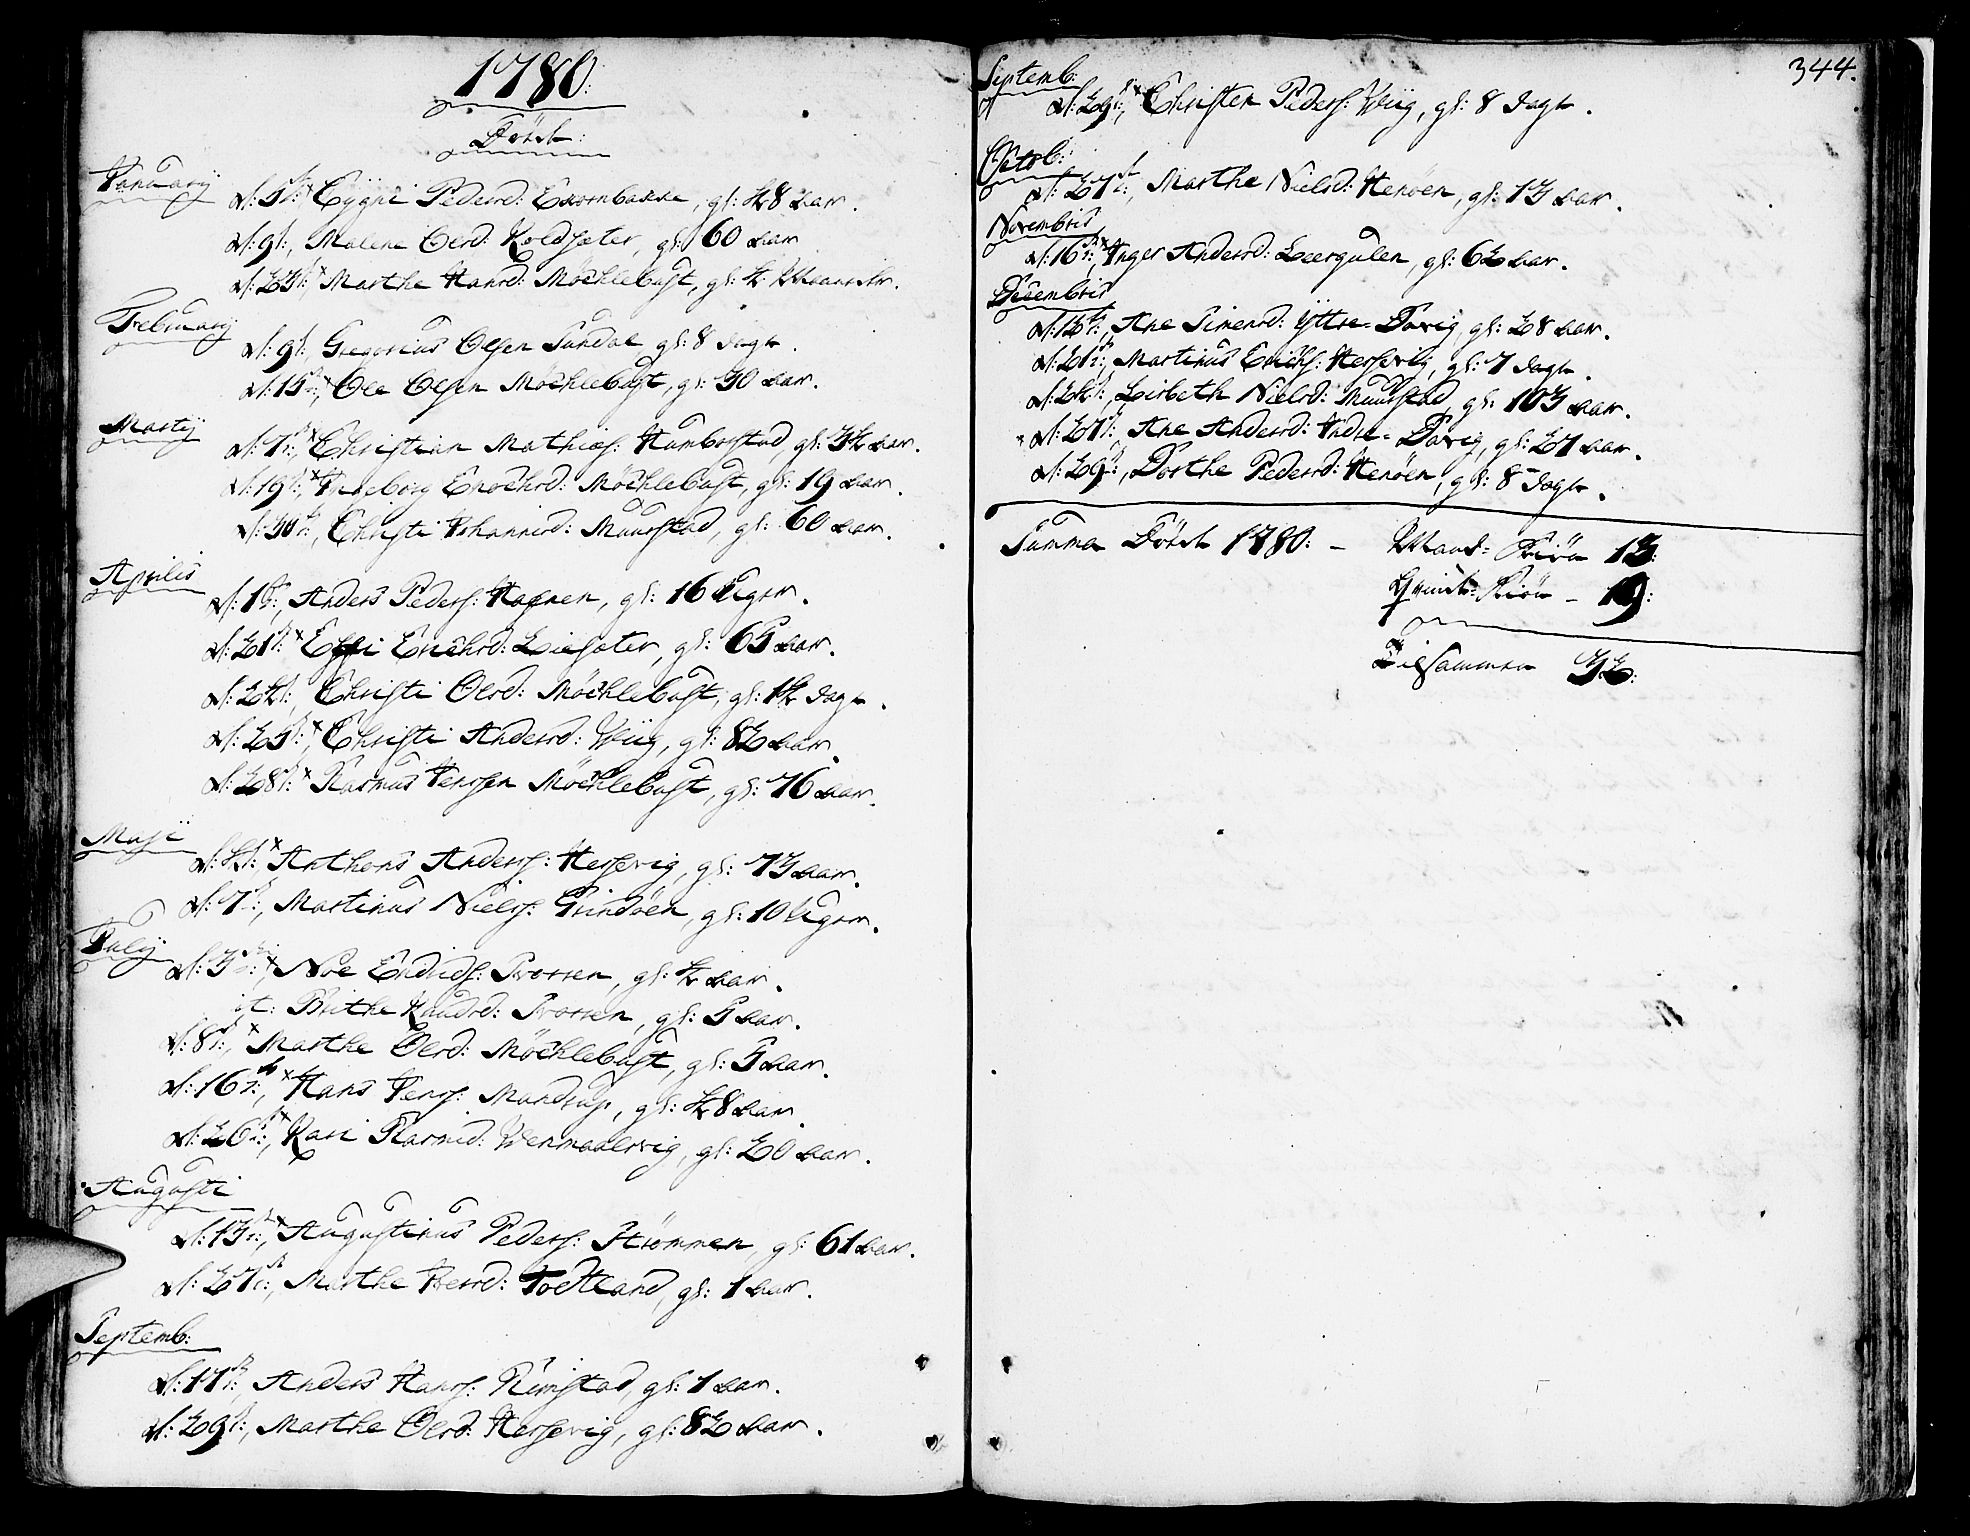 1780:
Døde:
Januarij
d: 5t:, Eygni Pedersd: Exornbakke, gl: 48 aar.
d: 9t:, Malene Olesd: Koldsæter, gl: 60 aar
d: 25t:, Marthe Hansd: Möcklebust, gl: 4 Maaneder.
Februarij
d: 9t:, Gregorius Olsen Sandal gl: 8 dage.
d: 15t:, Ole Olsen Möcklebust, gl: 30 aar.
Martij
d: 7t:, Christian Mathiæs: Humborstad, gl: 34 aar.
d: 19t:, Ingeborg Enochsd: Möcklebust, gl: 19 aar.
d: 30t:, Christi Johannesd: Muurstad, gl: 60 aar.
Aprilis
d: 1t:, Anders Peders: Hagnen, gl: 16 Uger.
d: 21t:, Enochsd: Liesæter, gl: 65 aar.
d: 24t:, Christi Olesd: Möcklebust, gl: 14 dage.
d: 25t:, Christi Andersd: Wiig, gl: 82 aar.
d: 28t: Rasmus Jenssen Möcklebust, gl: 76 aar.
Maji
d: 4t: Anthons Anders: Hessevig, gl: 73 aar.
d: 7t:, Martinus Niels: Grindöen, gl: 10 Uger.
Julij
d: 3t:, Noe Endrids: Svorren, gl: 4 aar.
it: Brithe Knudsd: Svorren, gl: 5 aar.
d: 8t:, Marthe Olesd: Möcklebust, gl: 5 aar.
d: 16t:, Hans Jens: Mundsup, gl: 48 aar.
d: 26t:, Kari Rasmusd: Wenmaelsvig, gl: 20 aar.
Augusti
d: 13t:, Augustinus Peders: Strömmen, gl: 61 aar.
d: 27t:, Marthe Iversd: Todtland, gl: 1 aar.
Septemb:
d: 17t:, Anders Hans: Rimstad, gl: 1 aar.
d: 29t:, Marthe Olesd: Hessevig, gl: 82 aar.
344.
Septemb:
d: 29t:, Christen Peders: Wiig, gl: 8 dage.
Octob:
d: 27t:, Marthe Nielsd: Henöen, gl: 13 aar.
Novembris
d: 16t:, Inger Andersd: Leergulen, gl: 62 aar.
Decembris
d: 12t:, Ane Simensd: Yttre-Davig, gl: 28 aar.
d: 20t:, Martinus Erichs: Hessevig, gl: 7 dage.
d: 24t:, Lisbeth Nielsd: Muurstad, gl: 103 aar.
d: 27t:, Ane Andersd: Indre-Davig, gl: 27 aar.
d: 29t:, Dorthe Pedersd: Henöen, gl: 8 dage.
Summa Døde 1780: - Mand-Kiön 13:
Qvinde-Kiön - 19:
Tilsammen 32: